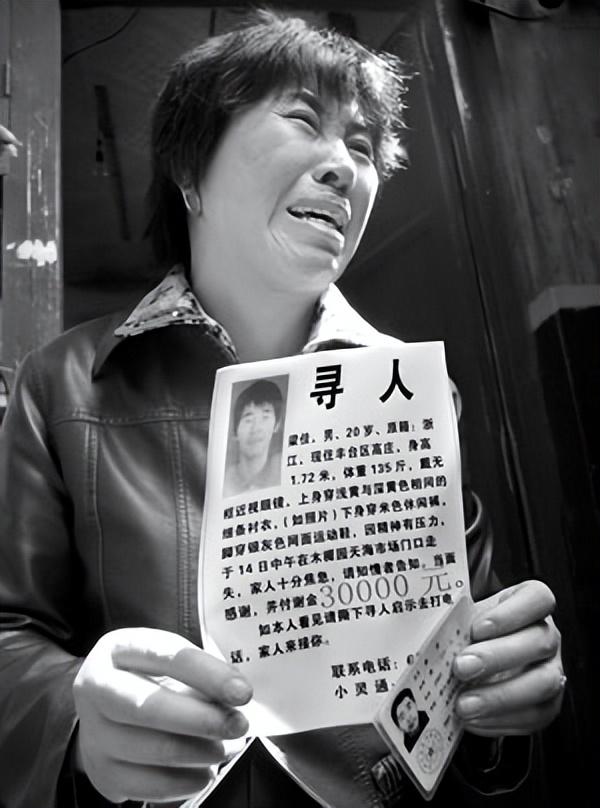 寻人
梁佳，男，20岁、原籍：浙
江，现住丰台区高庄，身高
1.72米，体重135斤，戴无
框近视眼镜，上身穿浅黄与深黄色相间的
细条衬衣，(如照片)下身穿米色休闲裤，
脚穿银灰色网面运动鞋，因精神有压力，
于14日中午在木樨园天海市场门口走
失，家人十分焦急，请知情者告知。当面
感谢，并付谢金30000元。
如本人看见请撕下寻人启示去打电
话，家人来接你。
联系电话：
小灵通